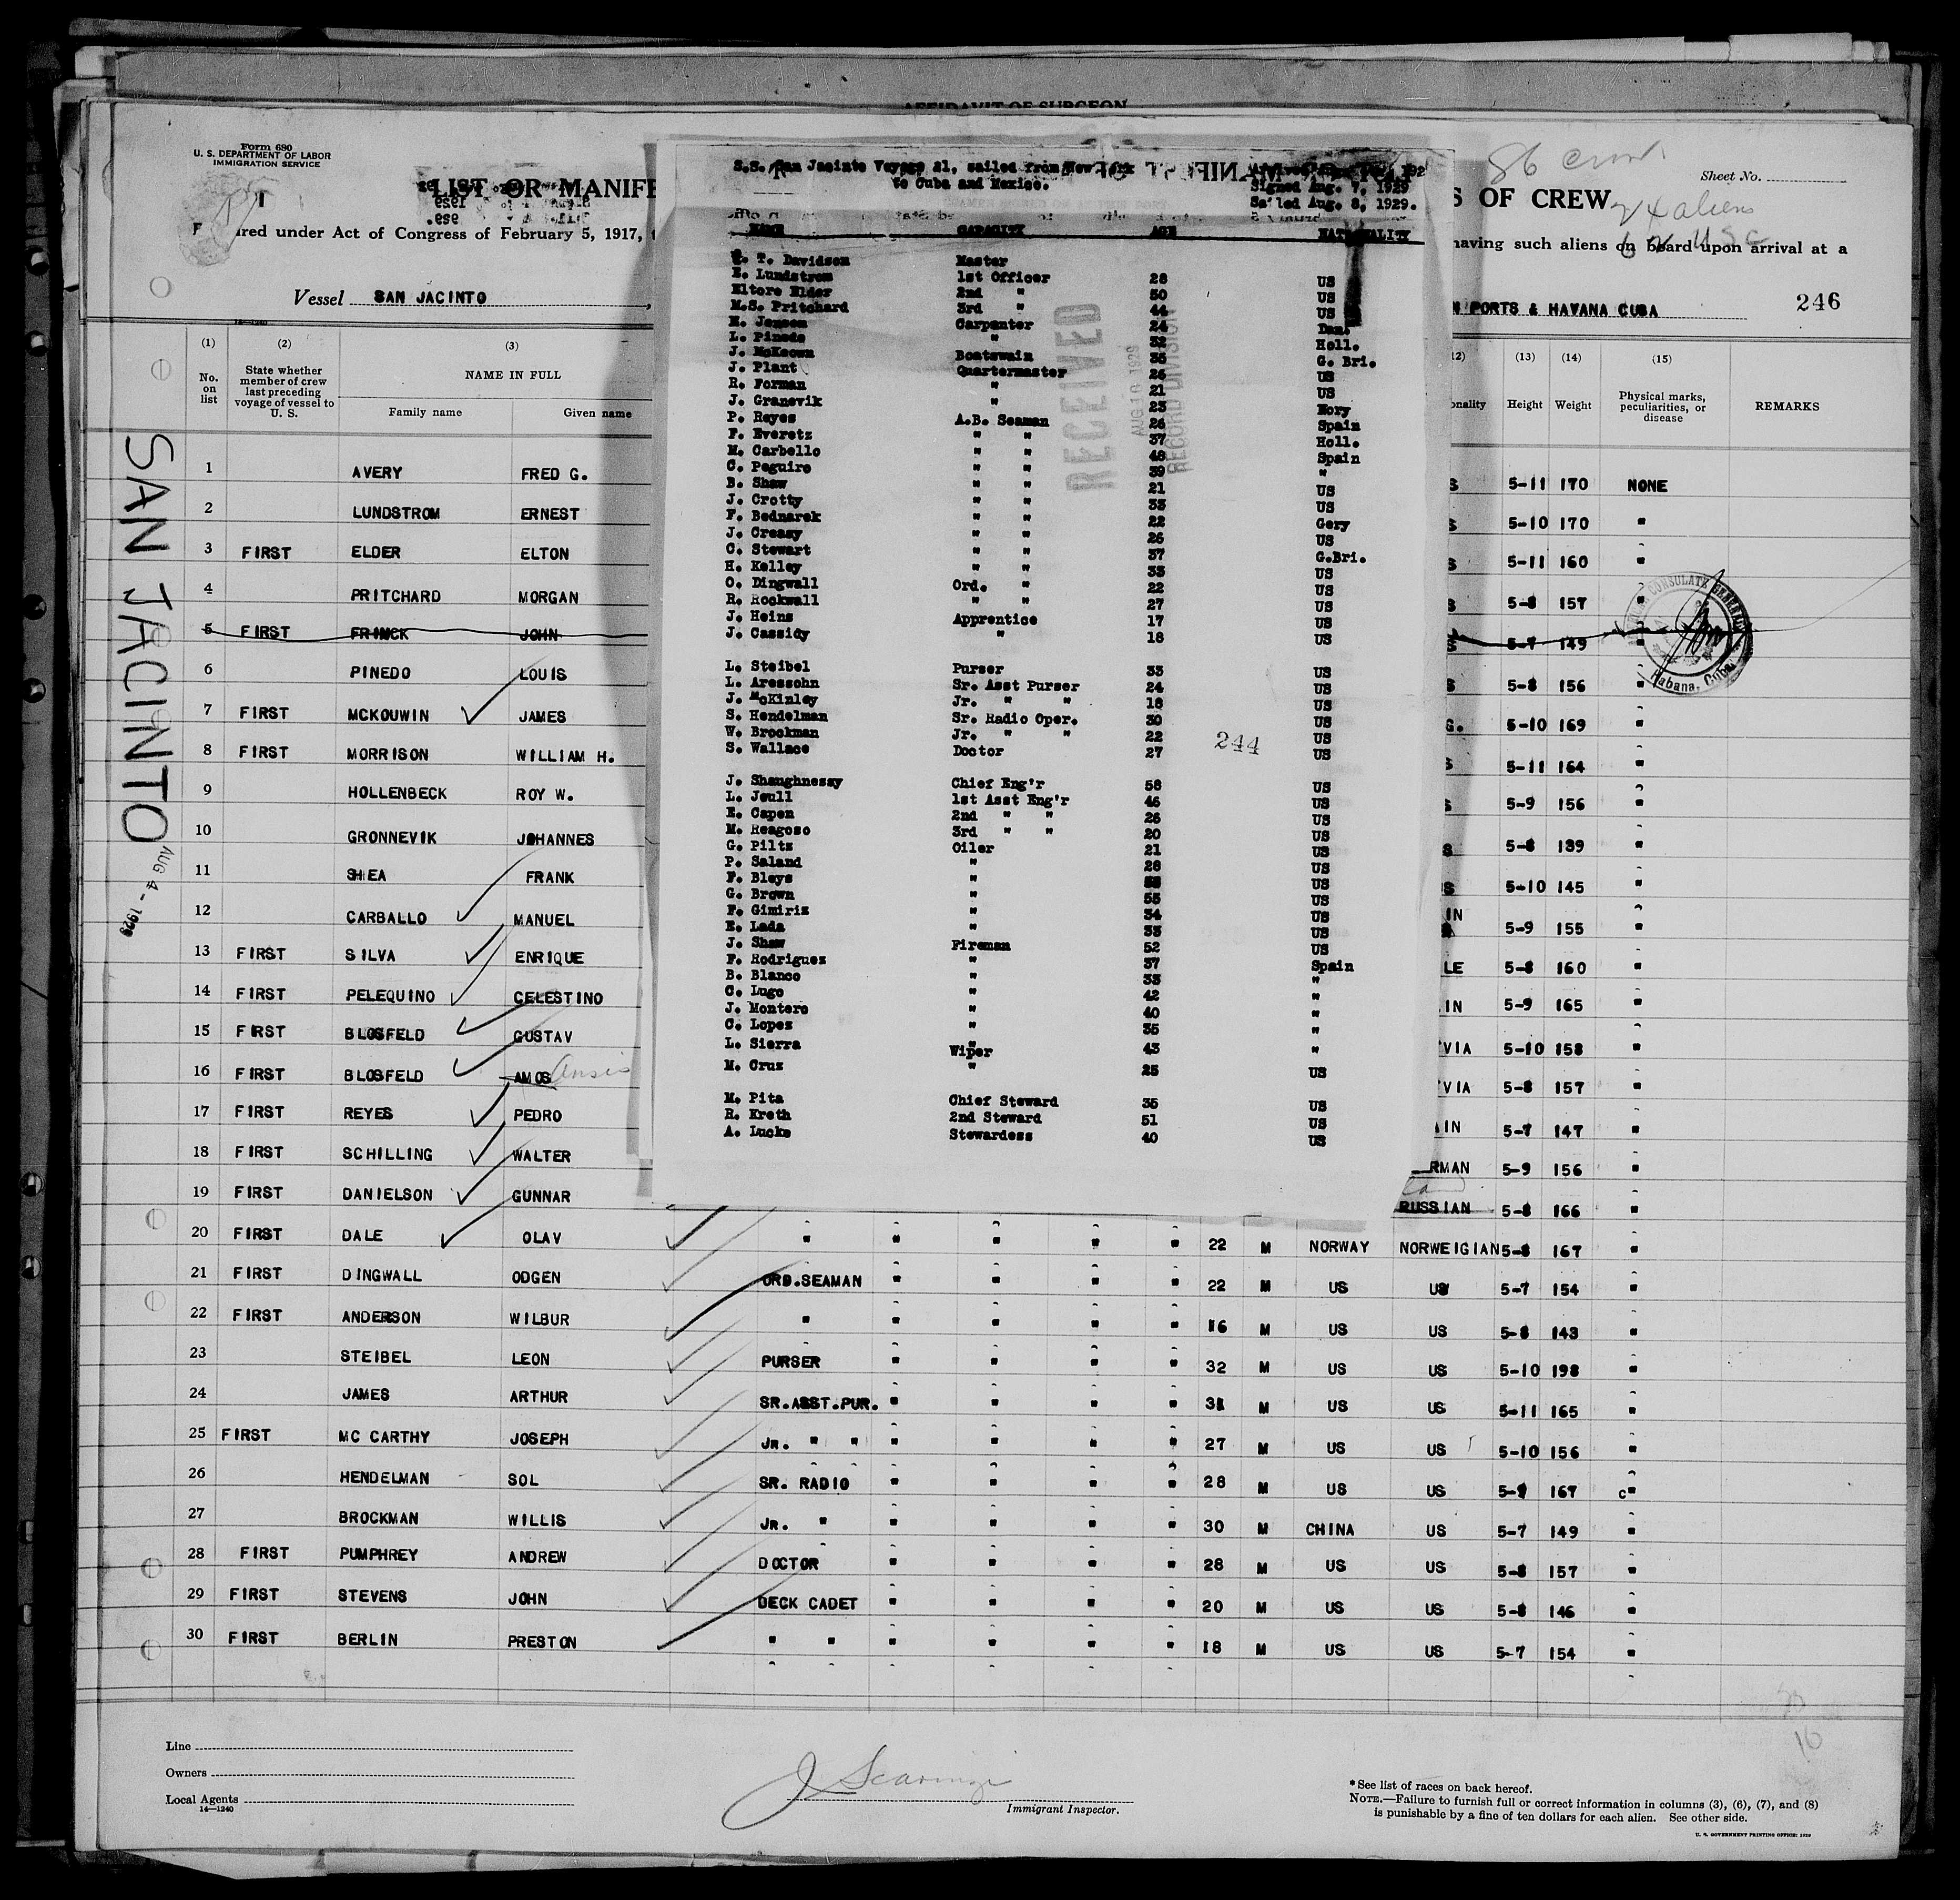 AFFIDAVIT OF SURGEON
Form 680
U. S. DEPARTMENT OF LABOR
IMMIGRATION SERVICE
86 crew
Sheet No.
LIST OR MANIFE
S OF CREW
24 aliens
62 USC
red under Act of Congress of February 5, 1917,
having such aliens on board upon arrival at a
Vessel SAN JACINTO
N PORTS & HAVANA CUBA
246
S.S. San Jacinto Voyage 21, sailed from New York
to Cuba and Mexico.
Signed Aug. 7, 1929
Sailed Aug. 8, 1929.
NAME CAPACITY AGE NATIONALITY
T. Davidson Master
E. Lundstrom 1st Officer 28 US
Eltore Elder 2nd " 50 US
M.S. Pritchard 3rd " 44 US
H. Jensen Carpenter 24 Dan.
L. Pinedo " 32 Holl.
J. McKeown Boatswain 36 G. Bri.
J. Plant Quartermaster 26 US
R. Forman " 21 US
J. Granevik " 23 Nory
P. Reyes A.B. Seaman 26 Spain
F. Everetz " " 37 Holl.
M. Carbello " " 48 Spain
C. Peguiro " " 39 "
B. Shaw " " 21 US
J. Crotty " " 33 US
F. Bednarek " " 22 Gery
J. Creasy " " 26 US
C. Stewart " " 37 G.Bri.
H. Kelley " " 33 US
O. Dingwall Ord. " 22 US
R. Rockwall " " 27 US
J. Heins Apprentice 17 US
J. Cassidy " 18 US
L. Steibel Purser 33 US
L. Aressohn Sr. Asst Purser 24 US
J. McKinley Jr. " " 18 US
S. Hendelman Sr. Radio Oper. 30 US
W. Brockman Jr. " " 22 US
S. Wallace Doctor 27 US
244
J. Shaughnessy Chief Eng'r 58 US
L. Jeull 1st Asst Eng'r 46 US
E. Capen 2nd " " 26 US
M. Reagoso 3rd " " 20 US
G. Piltz Oiler 21 US
P. Saland " 28 US
F. Bleys " US
G. Brown " 55 US
F. Gimiriz " 34 US
E. Lada " 33 US
J. Shaw Fireman 52 US
F. Rodriguez " 37 Spain
B. Blanco " 33 "
C. Lugo " 42 "
J. Montero " 40 "
C. Lopez " 35 "
L. Sierra " 43 "
M. Cruz Wiper 25 US
M. Pita Chief Steward 35 US
R. Kreth 2nd Steward 51 US
A. Lucke Stewardess 40 US
RECEIVED
AUG 16 1929
RECORD DIVISION
(1) (2) (3) 12) (13) (14) (15)
No. on list
State whether member of crew last preceding voyage of vessel to U. S.
NAME IN FULL
Family name Given name
onality Height Weight
Physical marks, peculiarities, or disease
REMARKS
SAN JACINTO
AUG 4 - 1929
1 AVERY FRED G. S 5-11 170 NONE
2 LUNDSTROM ERNEST S 5-10 170 "
3 FIRST ELDER ELTON S 5-11 160 "
4 PRITCHARD MORGAN S 5-8 157 "
5 FIRST FRINCK JOHN S 5-7 149 "
CONSULATE GENERAL
Habana, Cuba.
6 PINEDO LOUIS S 5-8 156 "
7 FIRST MCKOUWIN JAMES G. 5-10 169 "
8 FIRST MORRISON WILLIAM H. S 5-11 164 "
9 HOLLENBECK ROY W. S 5-9 156 "
10 GRONNEVIK JOHANNES S 5-8 139 "
11 SHEA FRANK S 5-10 145 "
12 CARBALLO MANUEL IN 5-9 155 "
13 FIRST SILVA ENRIQUE LE 5-8 160 "
14 FIRST PELEQUINO CELESTINO IN 5-9 165 "
15 FIRST BLOSFELD GUSTAV VIA 5-10 158 "
16 FIRST BLOSFELD AMOS Ansis VIA 5-8 157 "
17 FIRST REYES PEDRO AIN 5-7 147 "
18 FIRST SCHILLING WALTER RMAN 5-9 156 "
19 FIRST DANIELSON GUNNAR RUSSIAN 5-8 166 "
20 FIRST DALE OLAV " " " " " 22 M NORWAY NORWEIGIAN 5-8 167 "
21 FIRST DINGWALL ODGEN ORD.SEAMAN " " " " 22 M US US 5-7 154 "
22 FIRST ANDERSON WILBUR " " " " " 16 M US US 5-8 143 "
23 STEIBEL LEON PURSER " " " " 32 M US US 5-10 198 "
24 JAMES ARTHUR SR.ASST.PUR. " " " " 31 M US US 5-11 165 "
25 FIRST MC CARTHY JOSEPH JR. " " " " " " 27 M US US 5-10 156 "
26 HENDELMAN SOL SR. RADIO " " " " 28 M US US 5-9 167 "
27 BROCKMAN WILLIS JR. " " " " " 30 M CHINA US 5-7 149 "
28 FIRST PUMPHREY ANDREW DOCTOR " " " " 28 M US US 5-8 157 "
29 FIRST STEVENS JOHN DECK CADET " " " " 20 M US US 5-8 146 "
30 FIRST BERLIN PRESTON " " " " " " 18 M US US 5-7 154 "
10
Line
Owners
Local Agents
14—1240
Immigrant Inspector.
*See list of races on back hereof.
NOTE.—Failure to furnish full or correct information in columns (3), (6), (7), and (8)
is punishable by a fine of ten dollars for each alien. See other side.
U. S. GOVERNMENT PRINTING OFFICE: 1929